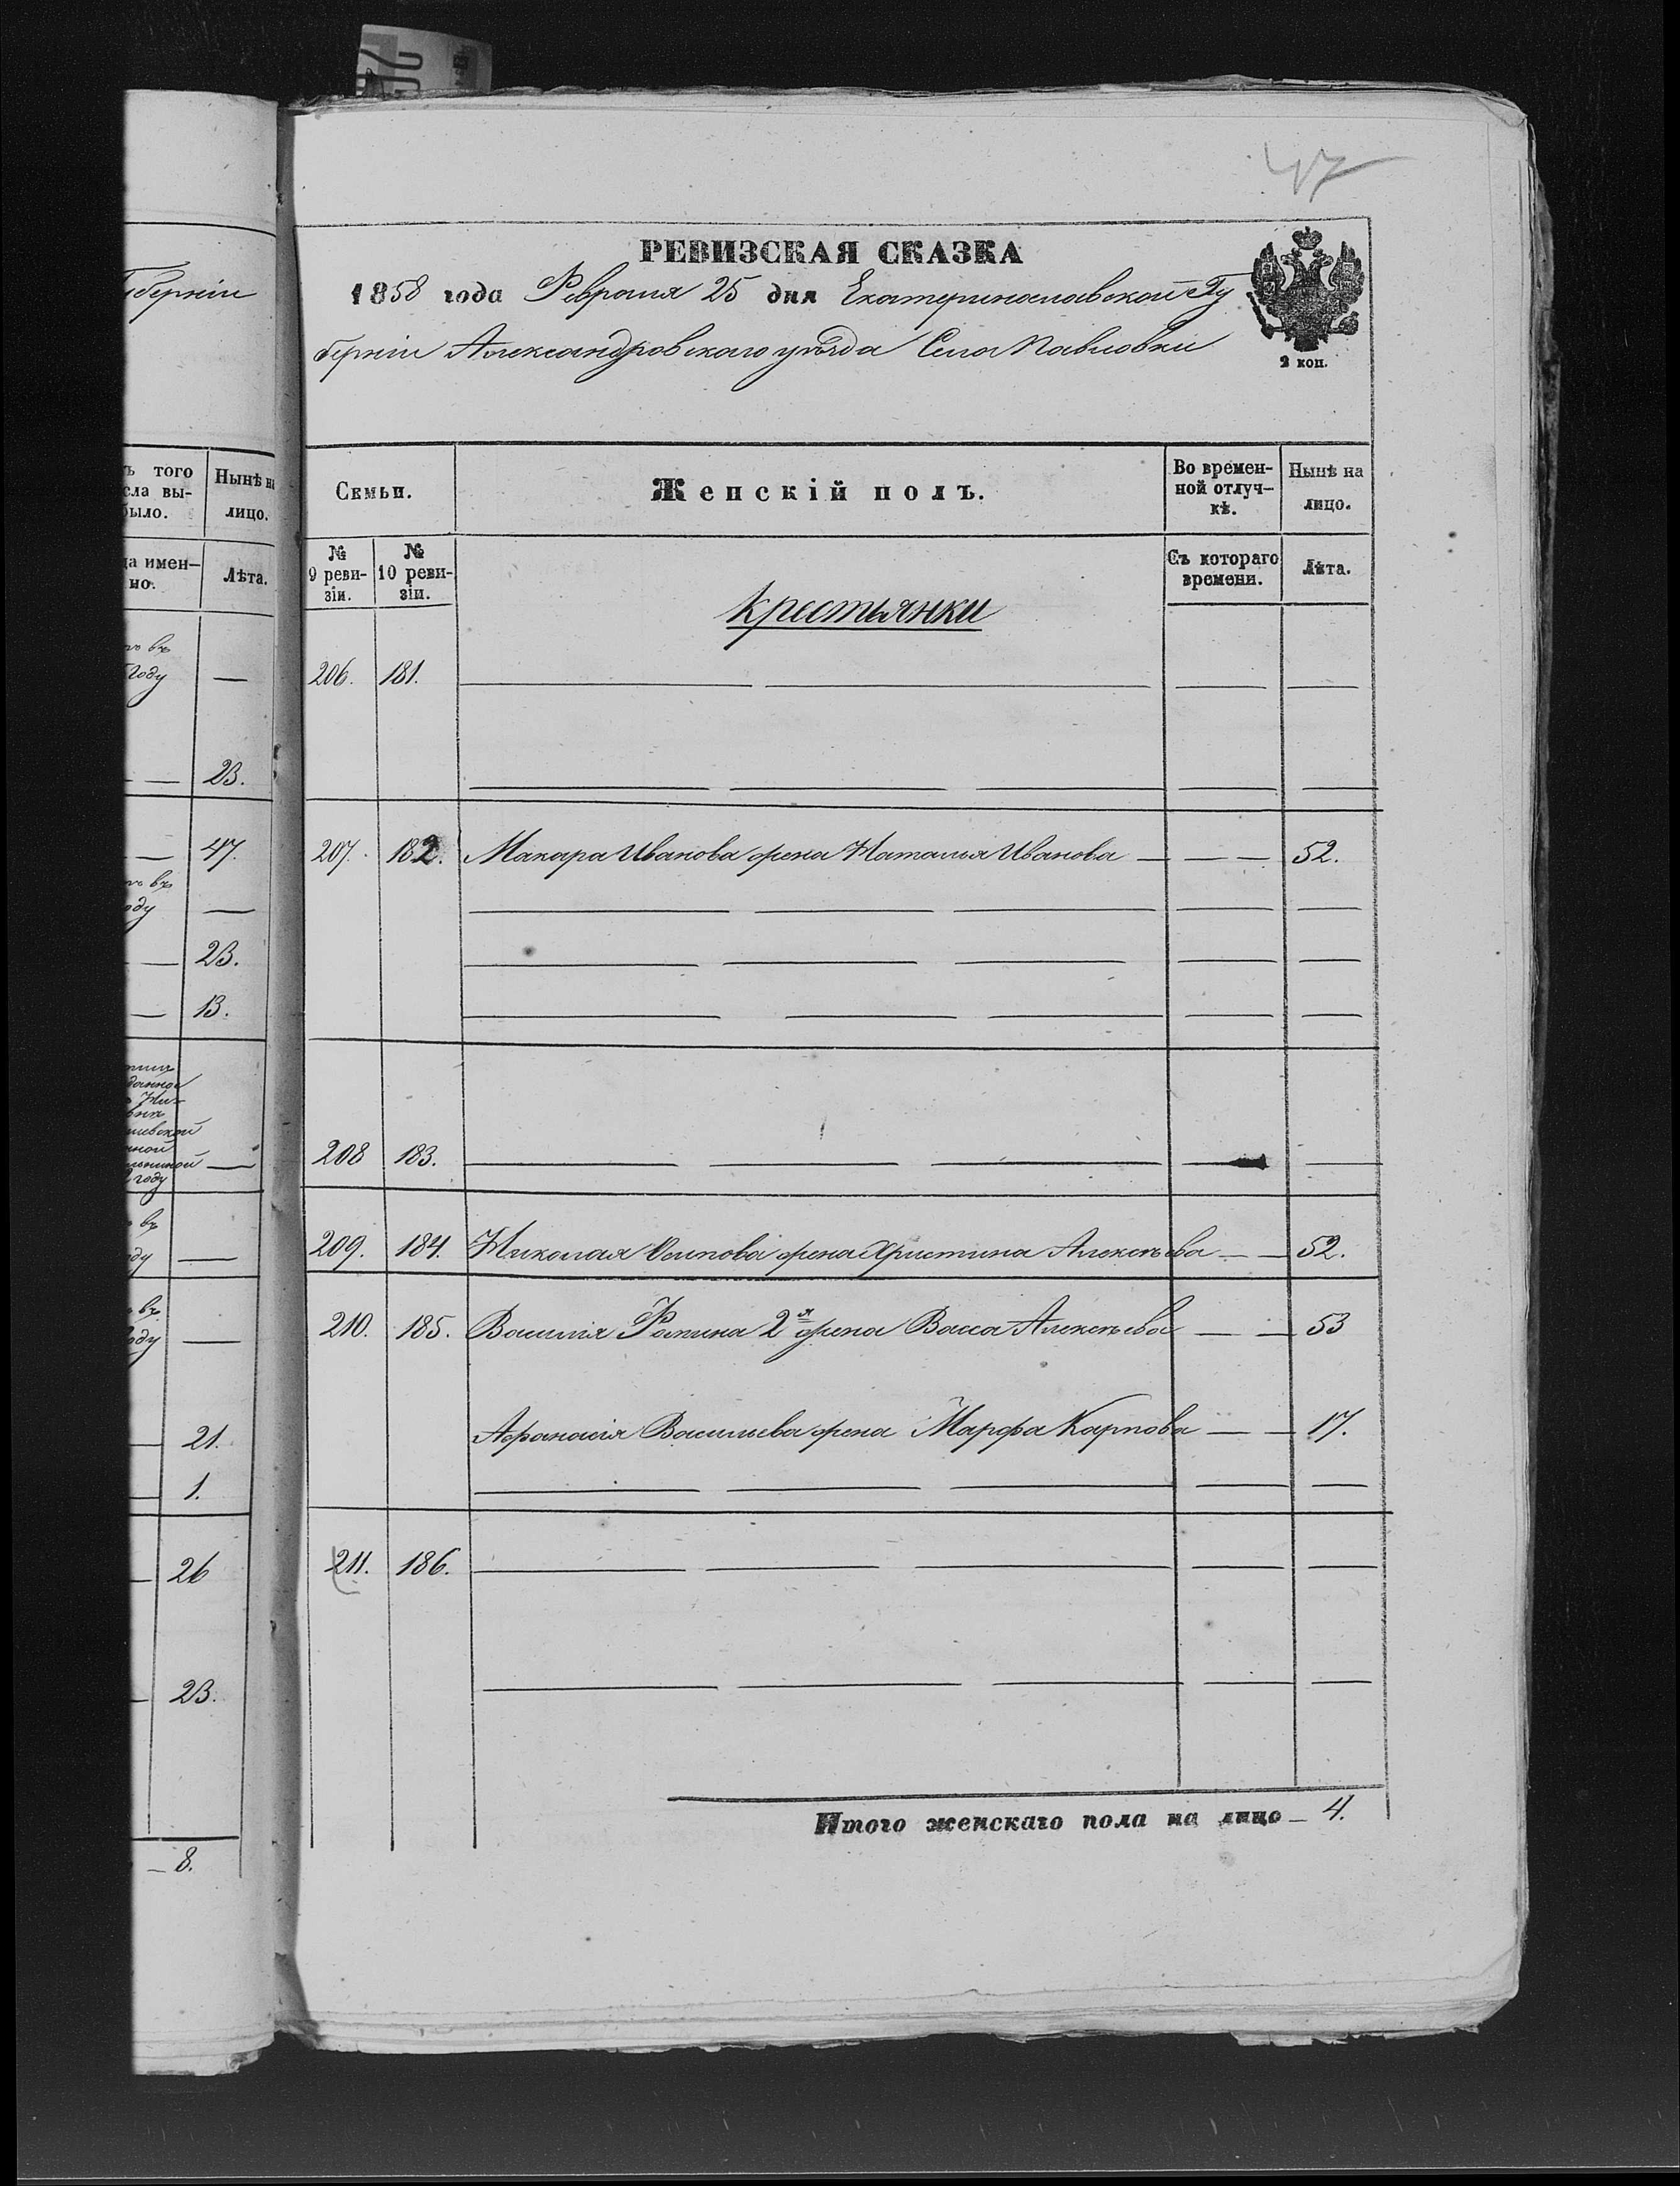 47
РЕВИЗСКАЯ СКАЗКА
1858 года Февраля 25 дня Екатеринославской Гу
берніи Александровскаго уѣзда Села Павловки
2 коп.
Семьи.
Женскій полъ.
Во времен-
ной отлуч-
кѣ.
Нынѣ на
лицо.
№
9 реви-
зіи.
№
10 реви-
зіи.
Съ котораго
времени.
Лѣта.
Крестьянки
206. 181.
207. 182. Макара Иванова жена Наталья Иванова 52.
208 183.
209. 184. Николая Осипова жена Христина Алексѣева 52.
210. 185. Василія Фомина 2я жена Васса Алексѣева 53
Афанасія Васильева жена Марфа Карпова 17.
211. 186.
Итого женскаго пола на лицо 4.
берніи
того
сла вы-
было.
Нынѣ на
лицо.
да имен-
но.
Лѣта.
въ
году
23.
47.
въ
оду
23.
13.
году
въ
оду
въ
оду
21.
1.
26
23.
8.